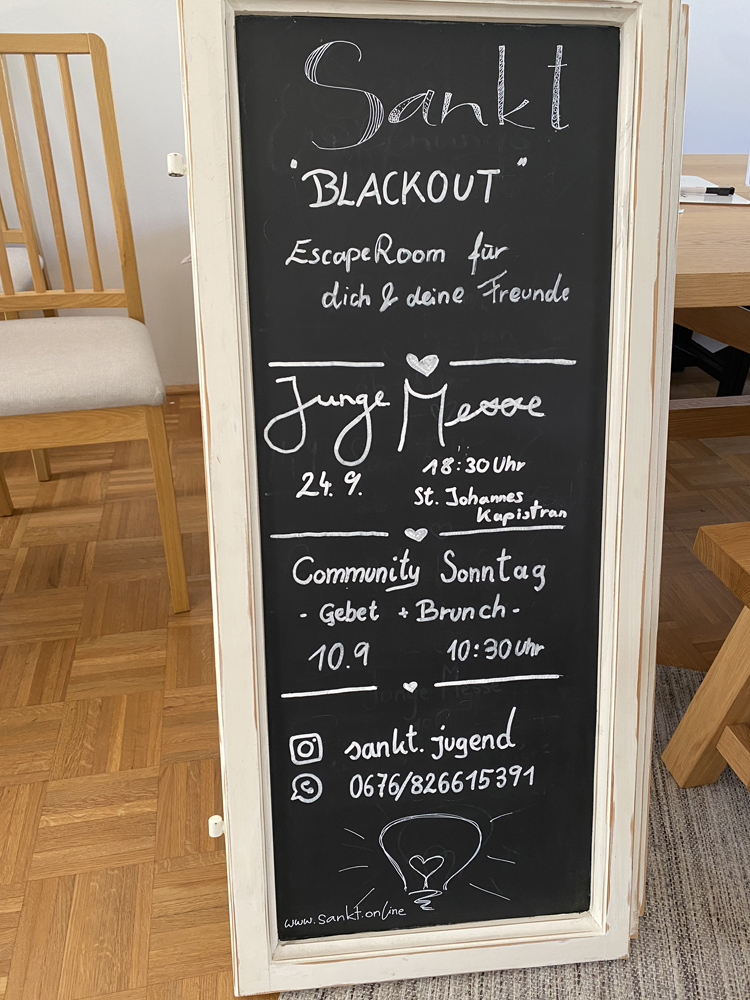 Sankt
"BLACKOUT"
EscapeRoom für
dich & deine Freunde
Junge Messe
24. 9.
18:30 Uhr
St. Johannes
Kapistran
Community Sonntag
- Gebet + Brunch -
10.9
10:30 Uhr
sankt.jugend
0676/826615391
www.sankt.online